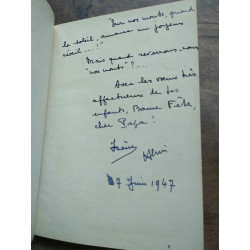 "Sur nos monts, quand
le soleil, annonce un joyeux
réveil ...!"
Mais quand reverrons-nous
"nos monts" ?....
Avec les vœux très
affectueux de tes
enfants, Bonne Fête,
cher Papa !
7 Juin 1947